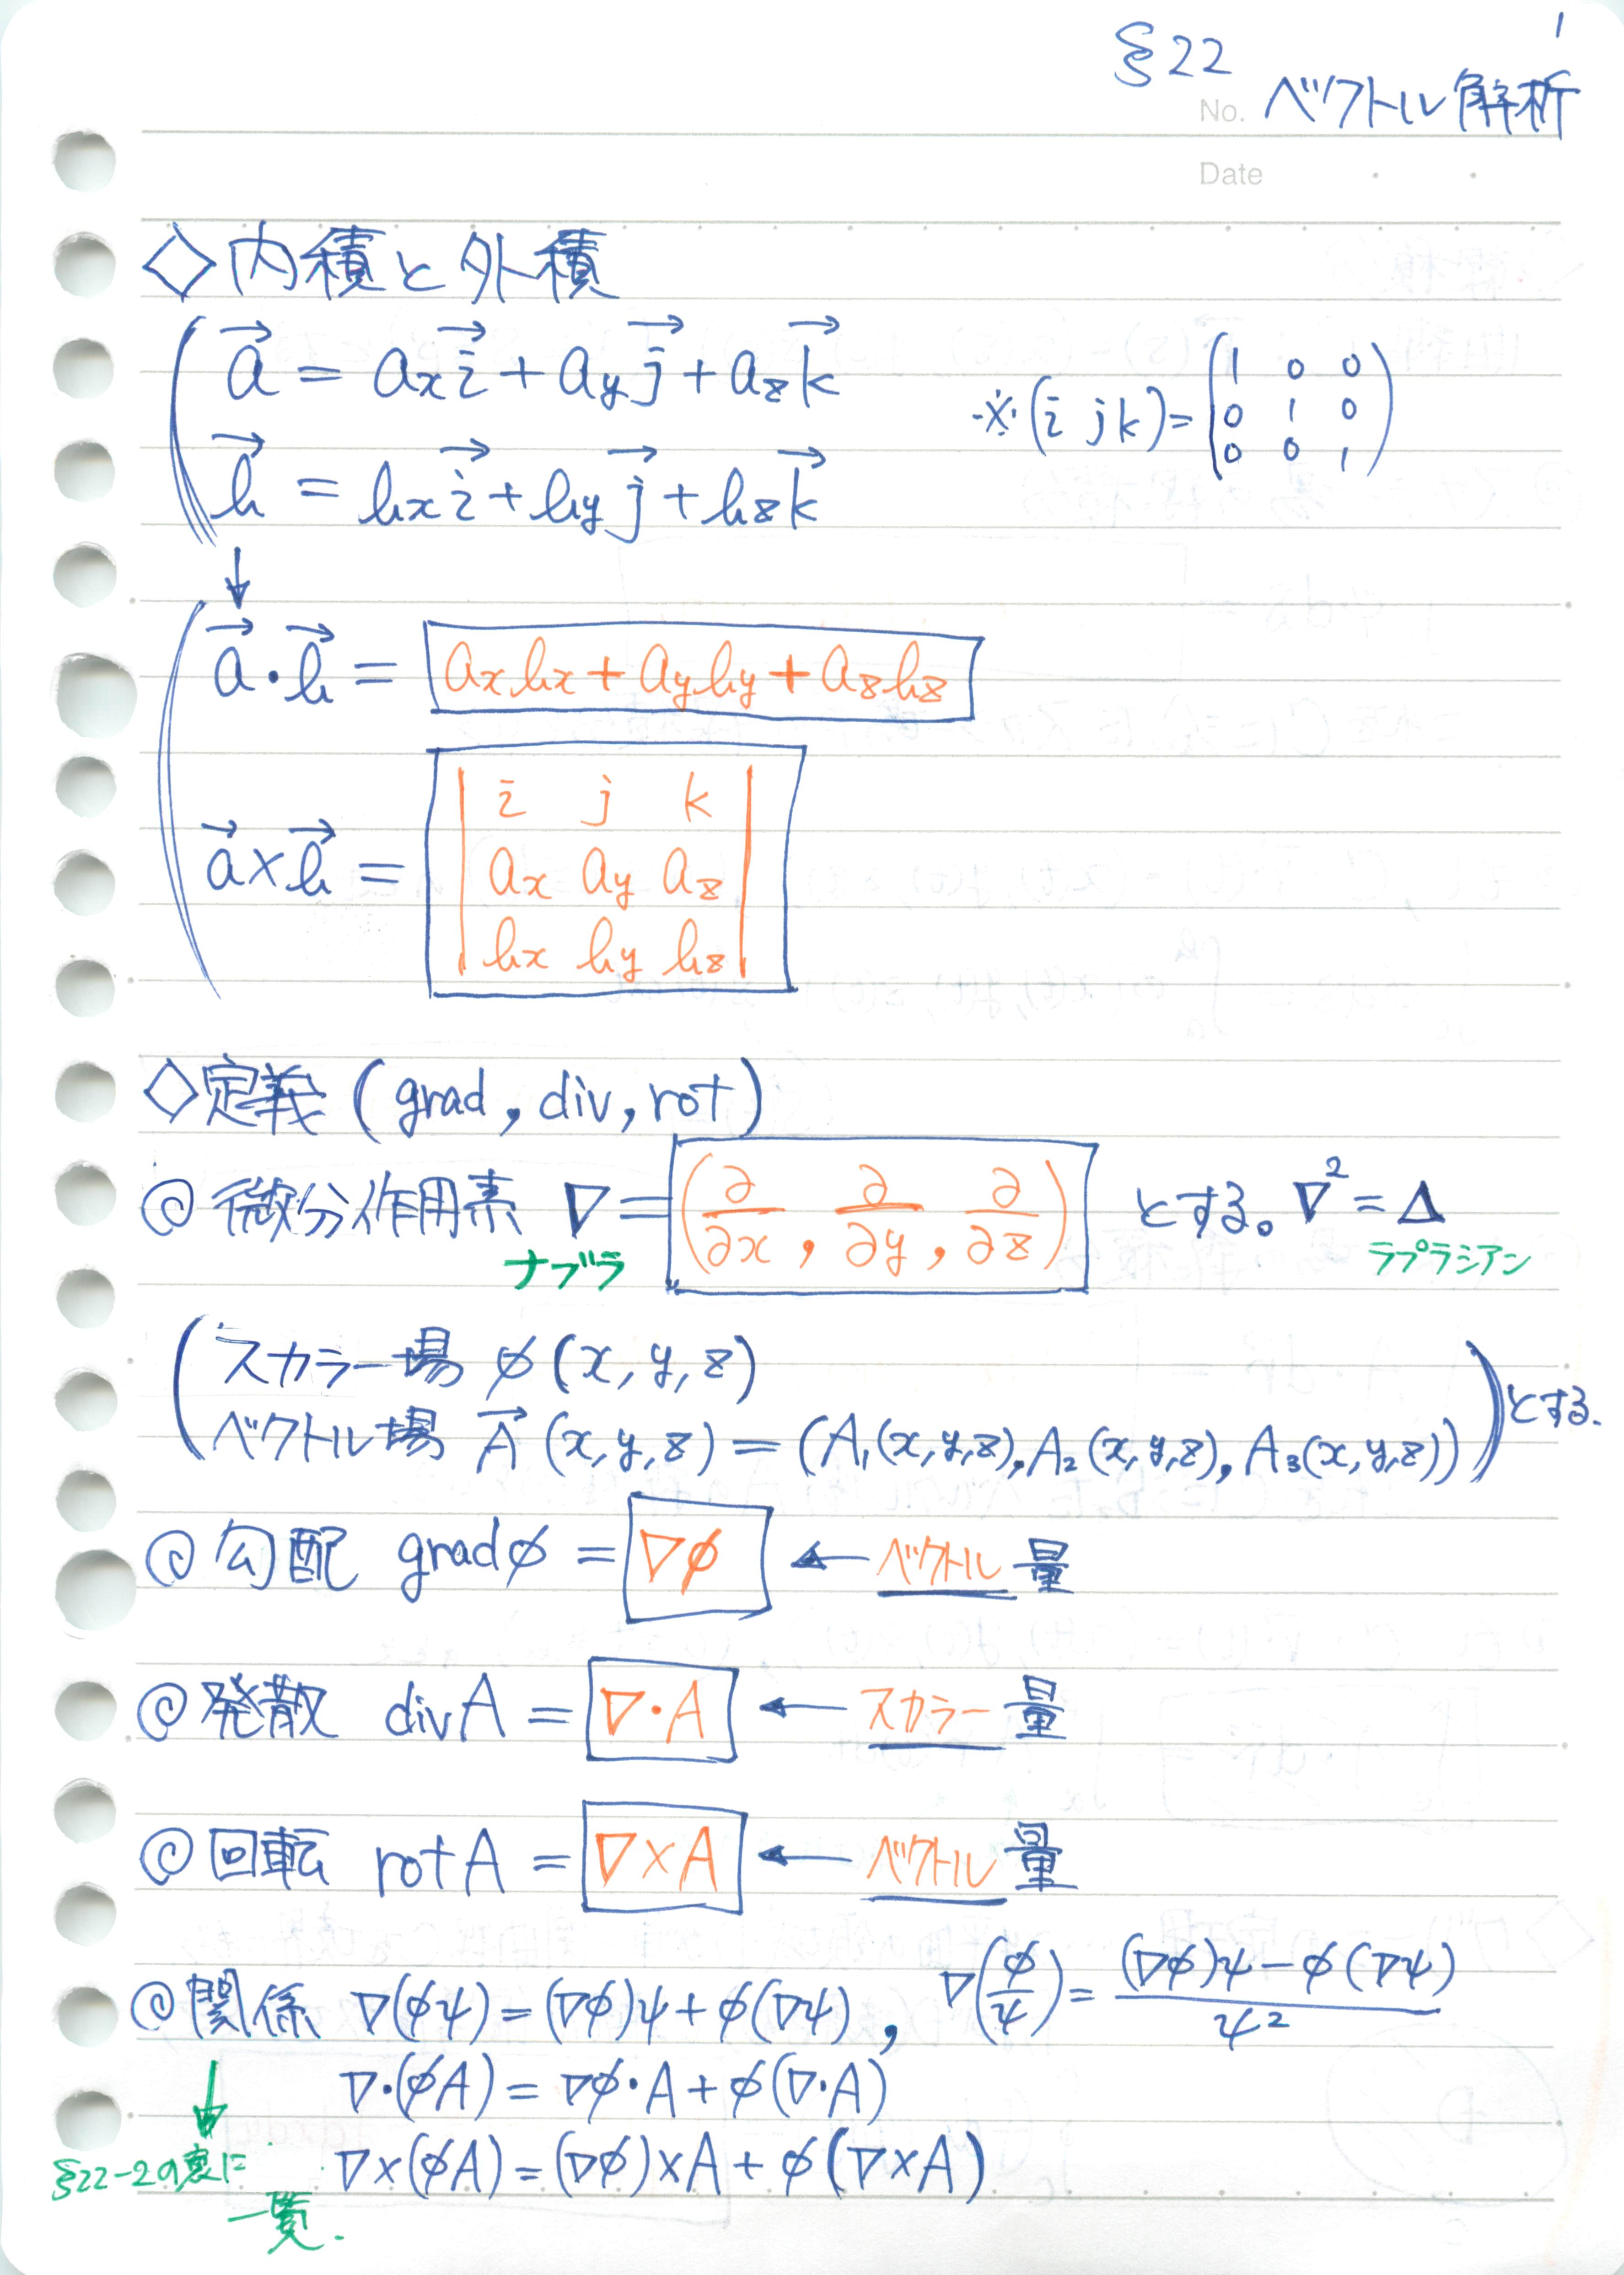 1
§22
No. ベクトル解析
Date
◇内積と外積
a⃗ = axi⃗ + ayj⃗ + azk⃗
※(i j k) = (1 0 0
0 1 0
0 0 1)
b⃗ = bxi⃗ + byj⃗ + bzk⃗
↓
a⃗・b⃗ = axbx + ayby + azbz
a⃗×b⃗ = | i j k |
| ax ay az |
| bx by bz |
◇定義 (grad, div, rot)
◎微分作用素 ∇ = (∂/∂x, ∂/∂y, ∂/∂z) とする。∇² = Δ
ナブラ ラプラシアン
(スカラー場 φ(x, y, z)
ベクトル場 A⃗(x, y, z) = (A₁(x,y,z), A₂(x,y,z), A₃(x,y,z))) とする.
◎勾配 gradφ = ∇φ ← ベクトル量
◎発散 divA = ∇・A ← スカラー量
◎回転 rotA = ∇×A ← ベクトル量
◎関係 ∇(φψ) = (∇φ)ψ + φ(∇ψ), ∇(φ/ψ) = ((∇φ)ψ − φ(∇ψ))/ψ²
∇・(φA) = ∇φ・A + φ(∇・A)
∇×(φA) = (∇φ)×A + φ(∇×A)
↓
§22-2の裏に
一覧.